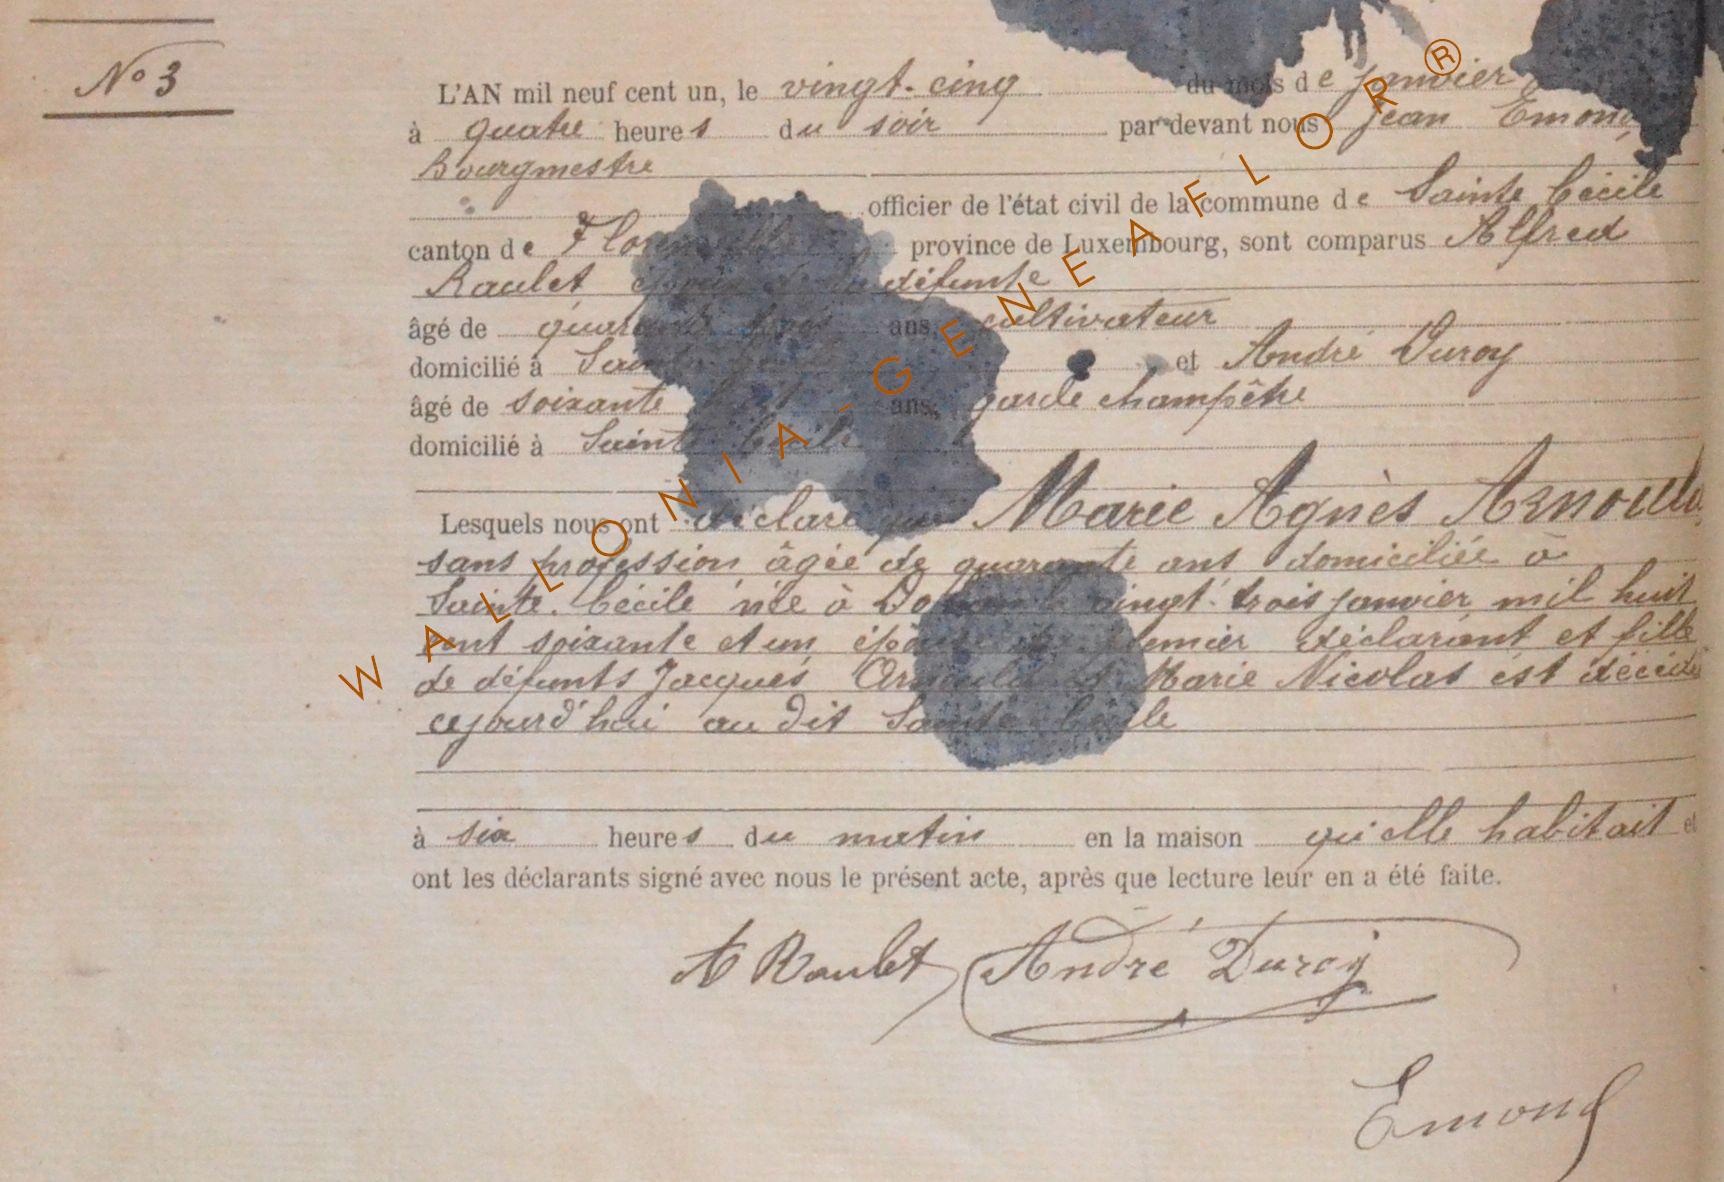 No 3
L'AN mil neuf cent un, le vingt-cinq du mois de janvier
à quatre heures du soir par devant nous Jean Emond
Bourgmestre
officier de l'état civil de la commune de Sainte Cécile
canton de Florenville province de Luxembourg, sont comparus Alfred
Raulet époux de la défunte
âgé de quarante ans, cultivateur
domicilié à Sainte et André Duroy
âgé de soixante ans, garde champêtre
domicilié à Sainte Cécile
Lesquels nous ont déclaré que Marie Agnès Arnould
sans profession âgée de quarante ans domiciliée à
Sainte-Cécile née à vingt-trois janvier mil huit
cent soixante et un épouse du premier déclarant et fille
de défunts Jacques Arnould et Marie Nicolas est décédée
cejourd'hui au dit Sainte Cécile
à six heures du matin en la maison qu'elle habitait et
ont les déclarants signé avec nous le présent acte, après que lecture leur en a été faite.
A Raulet André Duroy
Emond
WALLONIA-GENEAFLOR®